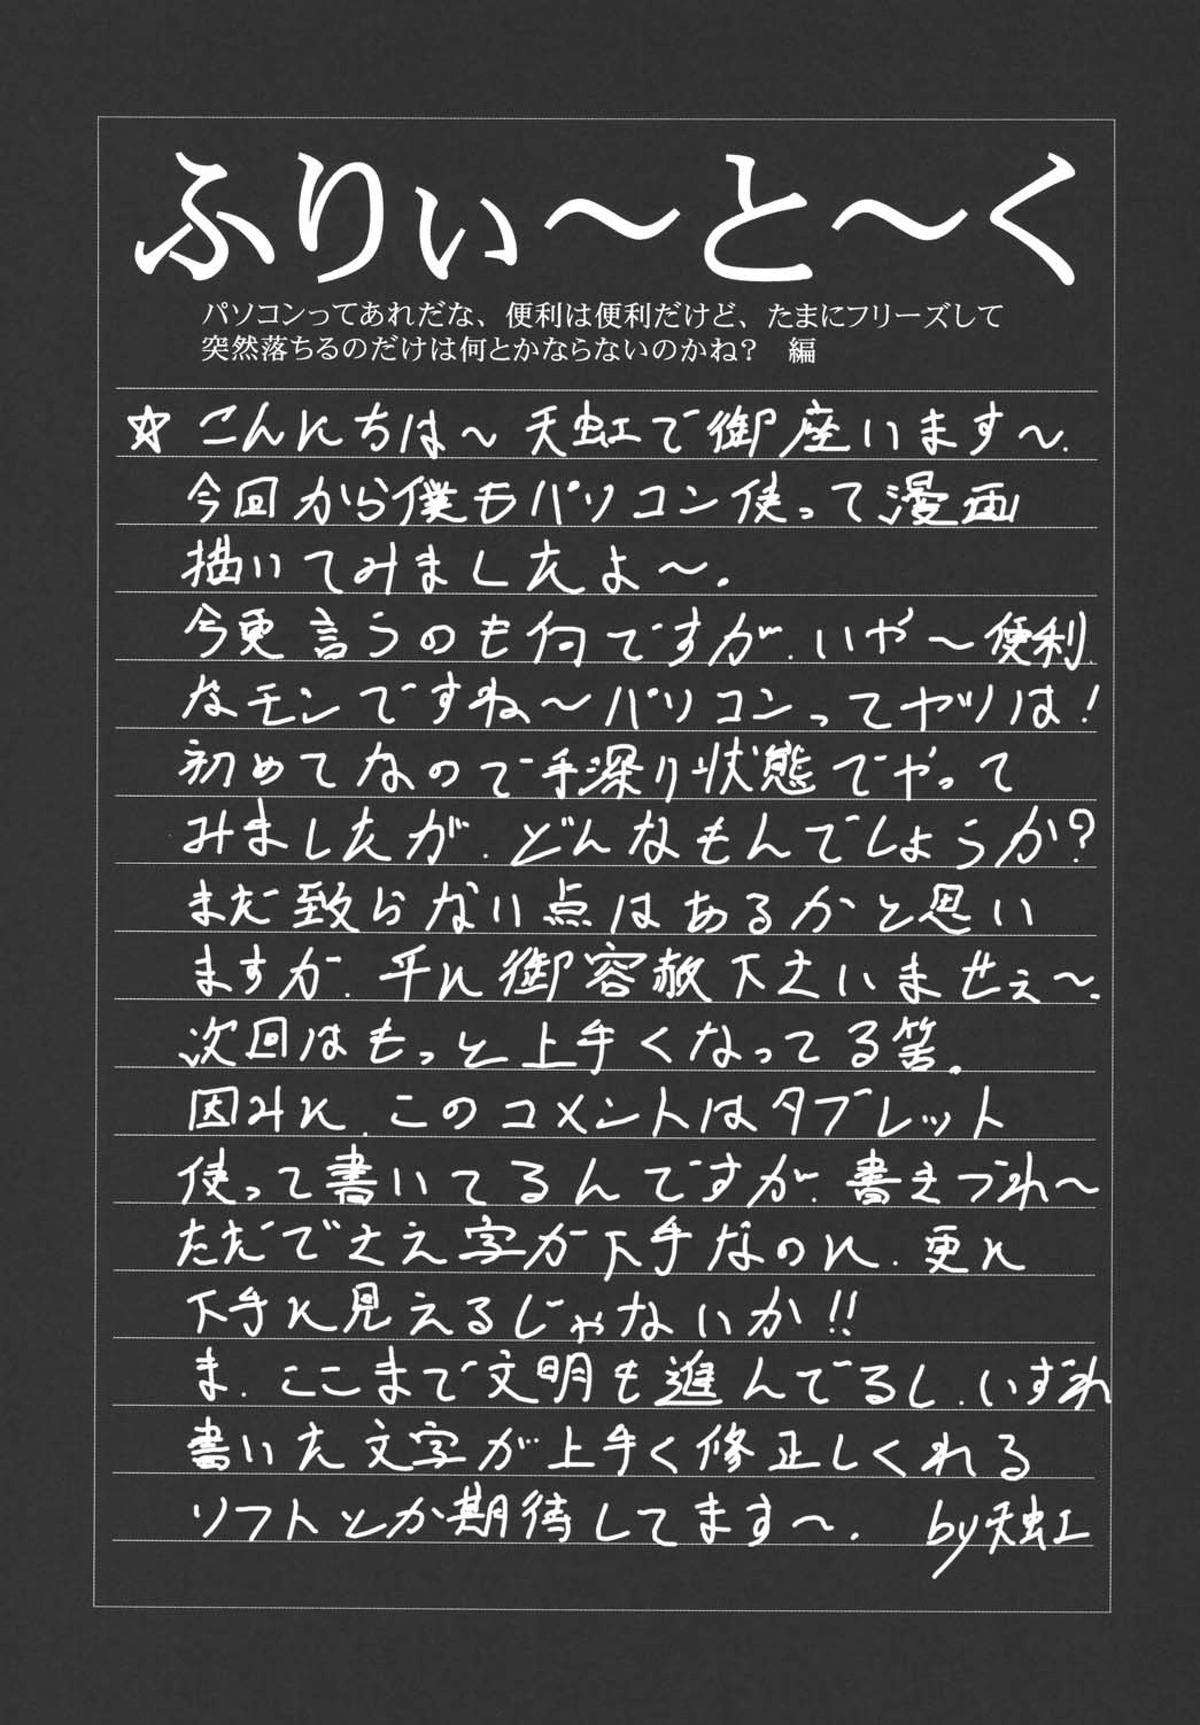 ふりぃ〜と〜く
パソコンってあれだな、便利は便利だけど、たまにフリーズして
突然落ちるのだけは何とかならないのかね？　編
☆こんにちは〜天虹で御座います〜.
今回から僕もパソコン使って漫画
描いてみましたよ〜.
今更言うのも何ですが.いや〜便利
なモンですね〜パソコンってヤツは！
初めてなので手深り状態でやって
みましたが.どんなもんでしょうか？
まだ致らない点はあるかと思い
ますが.平に御容赦下さいませぇ〜.
次回はもっと上手くなってる筈.
因みに.このコメントはタブレット
使って書いてるんですが.書きづれ〜
ただでさえ字が下手なのに.更に
下手に見えるじゃないか!!
ま.ここまで文明も進んでるし.いずれ
書いた文字が上手く修正しくれる
ソフトとか期待してます〜.　by天虹